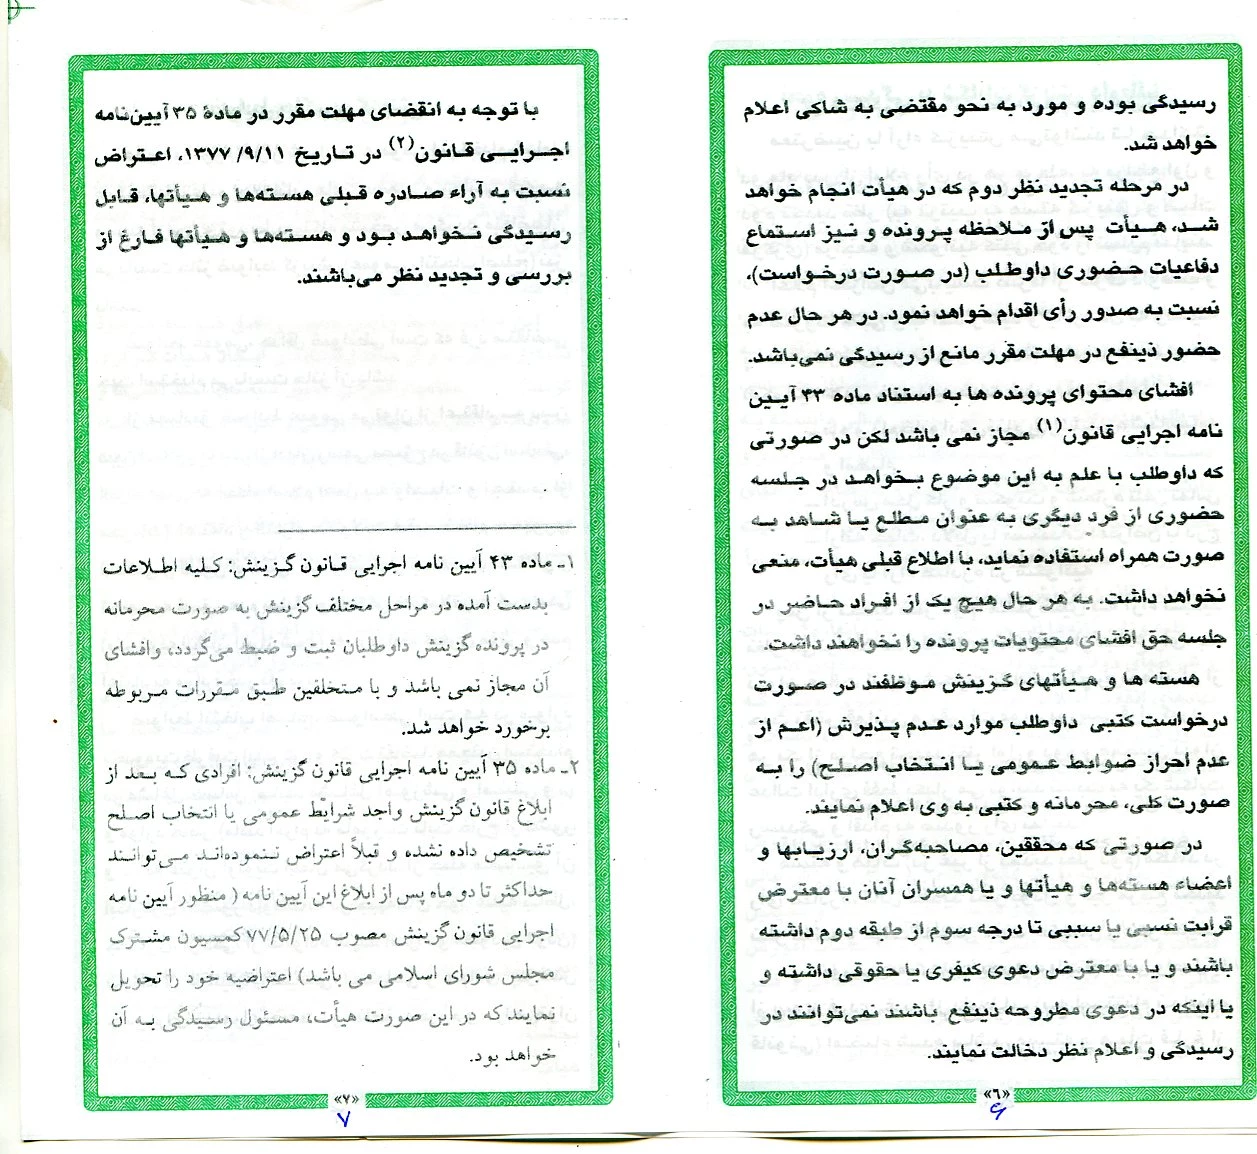 رسیدگی بوده و مورد به نحو مقتضی به شاکی اعلام
خواهد شد.
در مرحله تجدید نظر دوم که در هیأت انجام خواهد
شد، هیأت پس از ملاحظه پرونده و نیز استماع
دفاعیات حضوری داوطلب (در صورت درخواست)،
نسبت به صدور رأی اقدام خواهد نمود. در هر حال عدم
حضور ذینفع در مهلت مقرر مانع از رسیدگی نمی‌باشد.
افشای محتوای پرونده ها به استناد ماده ۴۳ آیین
نامه اجرایی قانون(۱) مجاز نمی باشد لکن در صورتی
که داوطلب با علم به این موضوع بخواهد در جلسه
حضوری از فرد دیگری به عنوان مطلع یا شاهد به
صورت همراه استفاده نماید، با اطلاع قبلی هیأت، منعی
نخواهد داشت. به هر حال هیچ یک از افراد حاضر در
جلسه حق افشای محتویات پرونده را نخواهند داشت.
هسته ها و هیأتهای گزینش موظفند در صورت
درخواست کتبی داوطلب موارد عدم پذیرش (اعم از
عدم احراز ضوابط عمومی یا انتخاب اصلح) را به
صورت کلی، محرمانه و کتبی به وی اعلام نمایند.
در صورتی که محققین، مصاحبه‌گران، ارزیابها و
اعضاء هسته‌ها و هیأتها و یا همسران آنان با معترض
قرابت نسبی یا سببی تا درجه سوم از طبقه دوم داشته
باشند و یا با معترض دعوی کیفری یا حقوقی داشته و
یا اینکه در دعوی مطروحه ذینفع باشند نمی‌توانند در
رسیدگی و اعلام نظر دخالت نمایند.
«۶»
۶
با توجه به انقضای مهلت مقرر در مادهٔ ۳۵ آیین‌نامه
اجرایی قانون(۲) در تاریخ ۱۳۷۷/۹/۱۱، اعتراض
نسبت به آراء صادره قبلی هسته‌ها و هیأتها، قابل
رسیدگی نخواهد بود و هسته‌ها و هیأتها فارغ از
بررسی و تجدید نظر می‌باشند.
۱ـ ماده ۴۳ آیین نامه اجرایی قانون گزینش: کلیه اطلاعات
بدست آمده در مراحل مختلف گزینش به صورت محرمانه
در پرونده گزینش داوطلبان ثبت و ضبط می‌گردد، وافشای
آن مجاز نمی باشد و با متخلفین طبق مقررات مربوطه
برخورد خواهد شد.
۲ـ ماده ۳۵ آیین نامه اجرایی قانون گزینش: افرادی که بعد از
ابلاغ قانون گزینش واجد شرایط عمومی یا انتخاب اصلح
تشخیص داده نشده و قبلاً اعتراض ننموده‌اند می‌توانند
حداکثر تا دو ماه پس از ابلاغ این آیین نامه ( منظور آیین نامه
اجرایی قانون گزینش مصوب ۷۷/۵/۲۵ کمسیون مشترک
مجلس شورای اسلامی می باشد) اعتراضیه خود را تحویل
نمایند که در این صورت هیأت، مسئول رسیدگی به آن
خواهد بود.
«۷»
۷